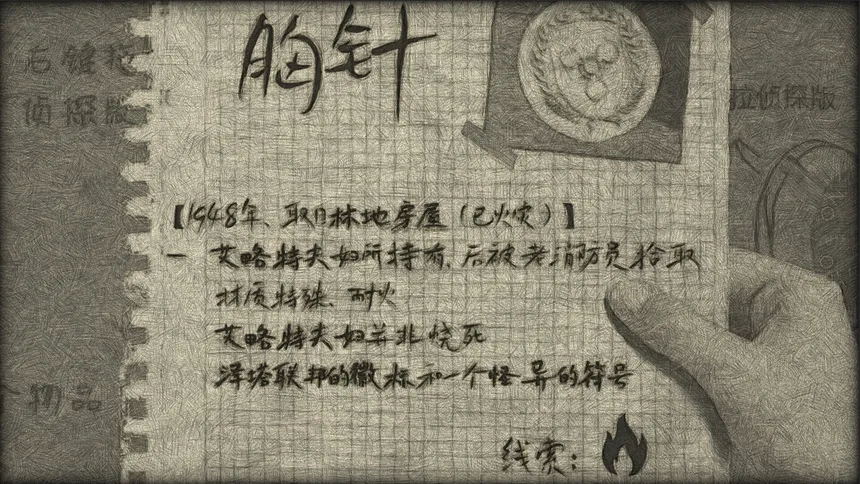 胸针
右键拉
侦探版
拉侦探版
【1948年、取日林地房屋（已火灾）】
一 艾略特夫妇所持有，后被老消防员拾取
材质特殊、耐火
艾略特夫妇并非烧死
泽塔联邦的徽标和一个怪异的符号
物品
线索：